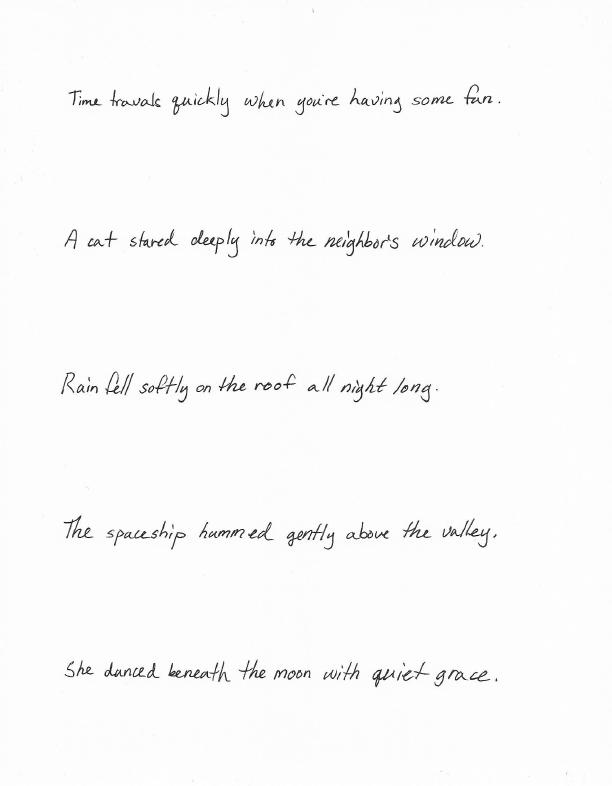 Time travals quickly when you're having some fun.
A cat stared deeply into the neighbor's window.
Rain fell softly on the roof all night long.
The spaceship hummed gently above the valley.
She danced beneath the moon with quiet grace.